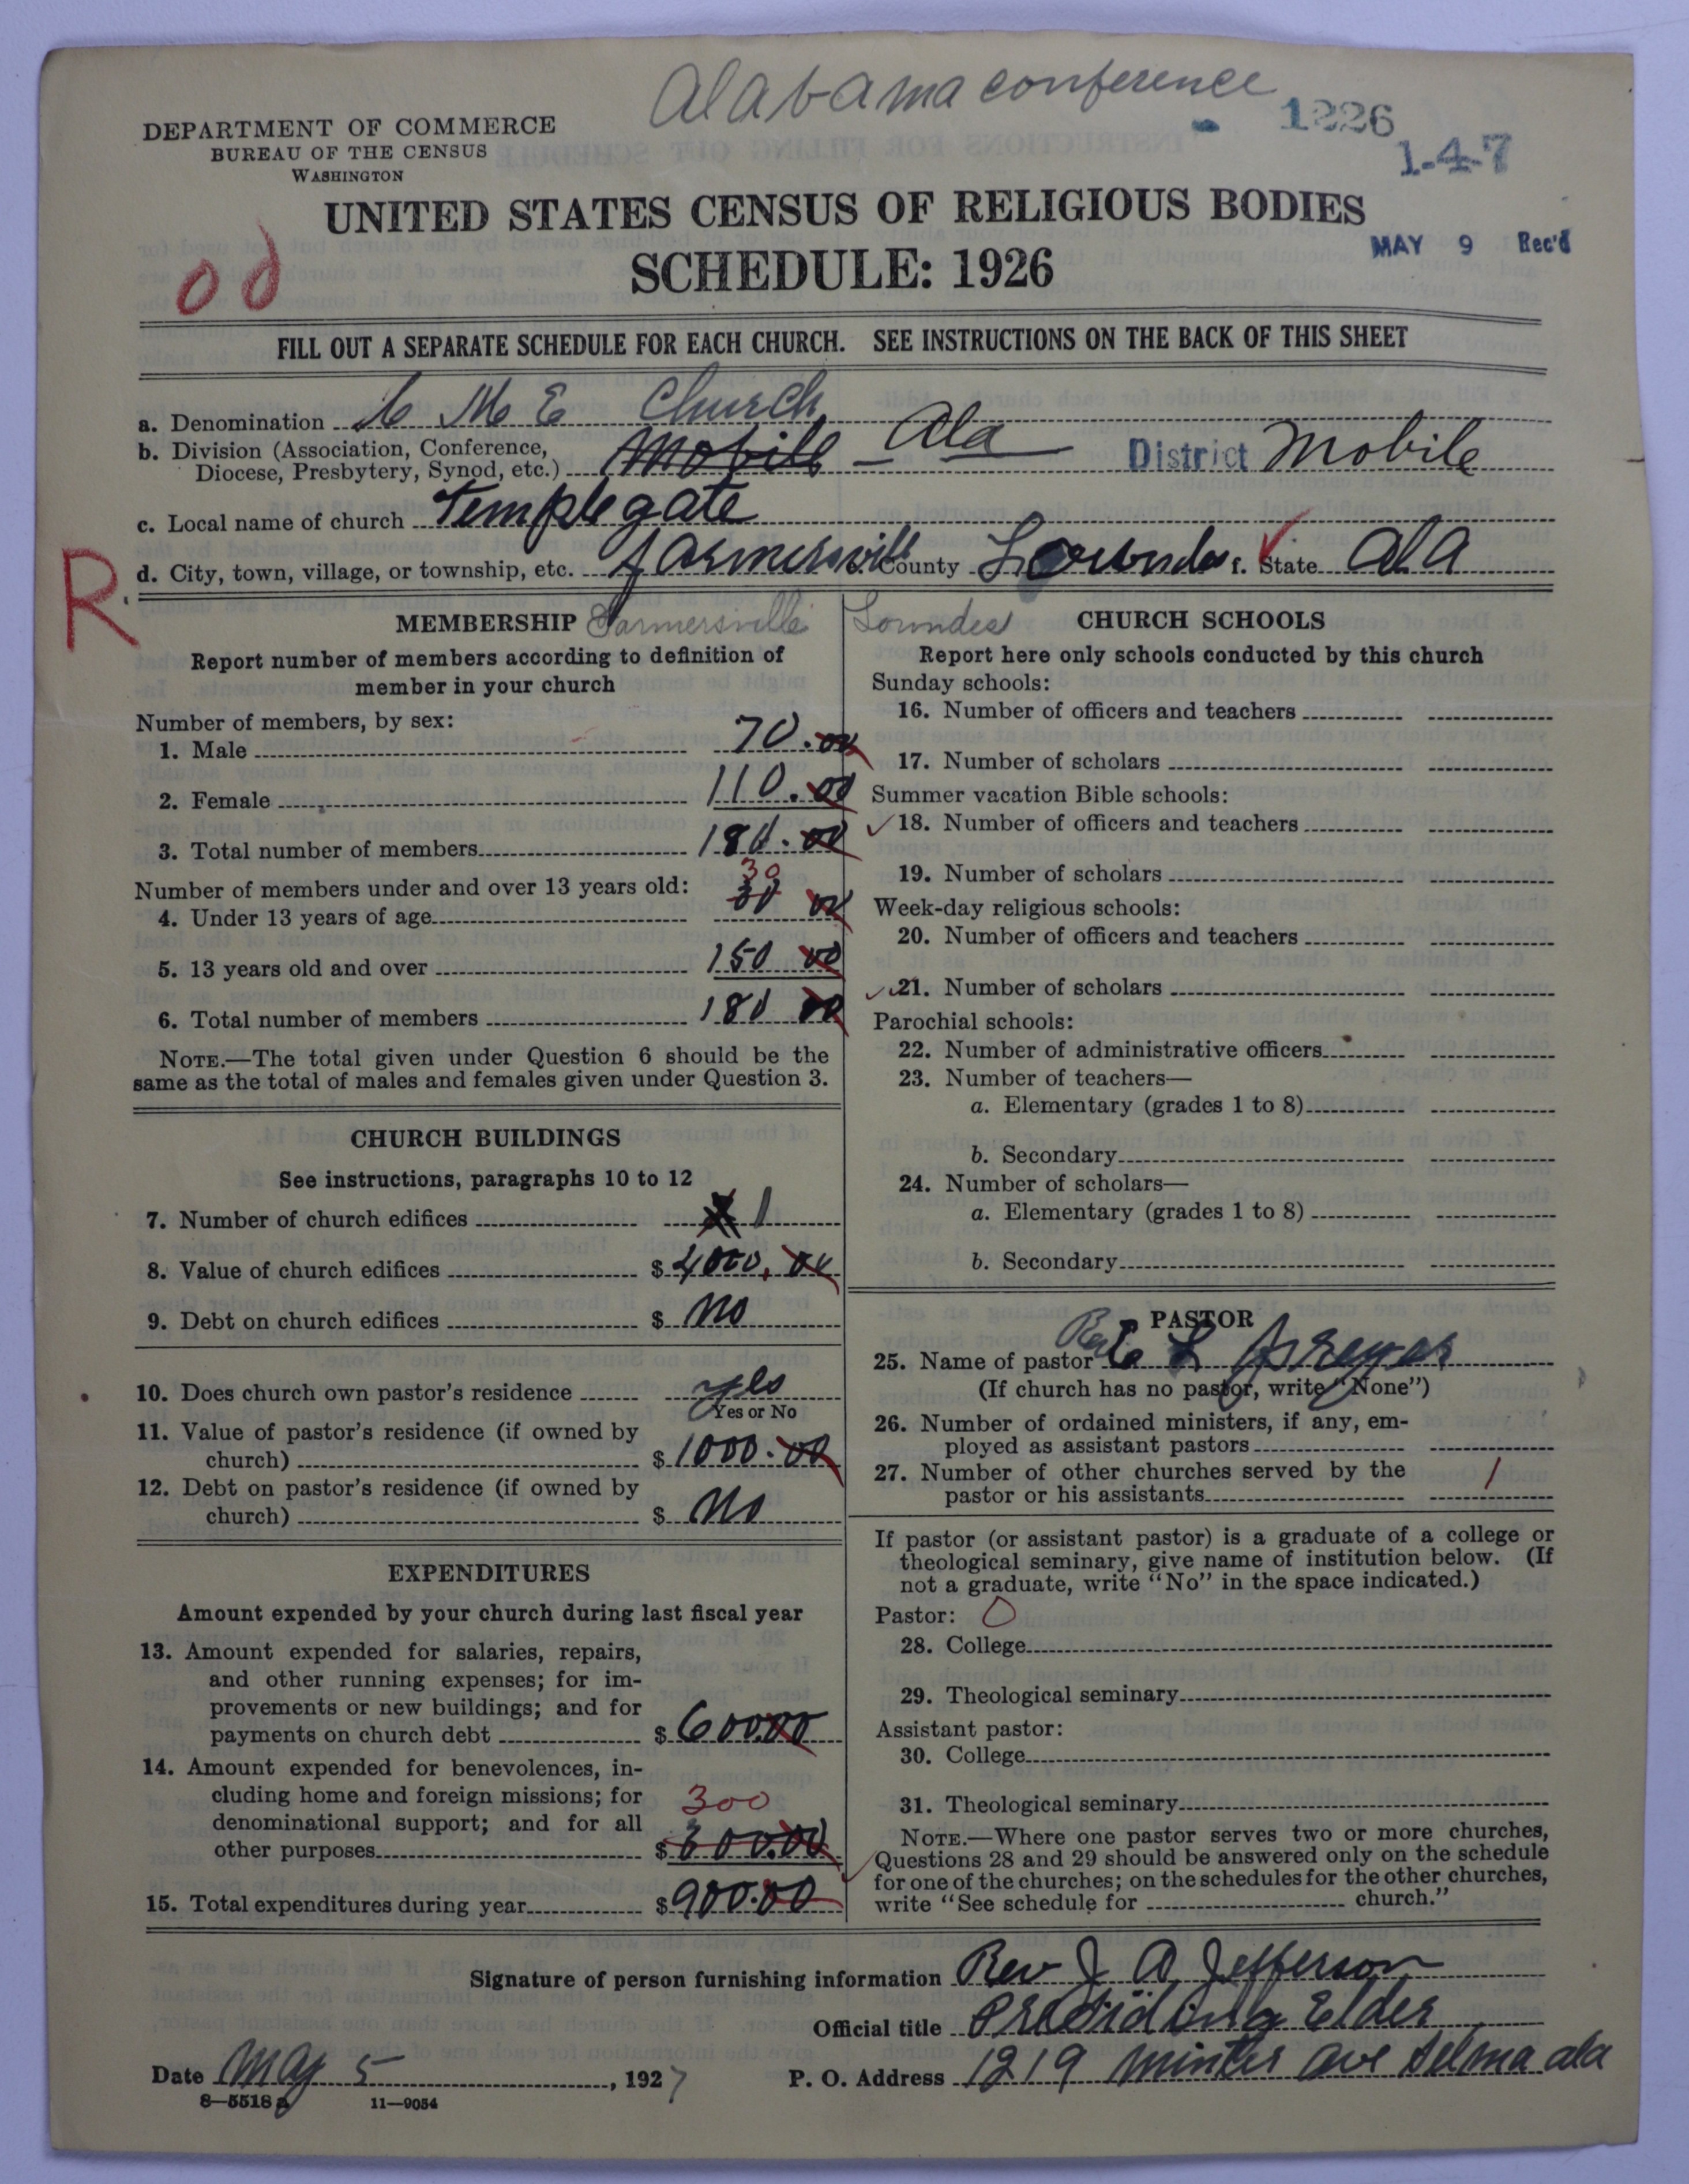 Alabama conference
1226
1-4-7
DEPARTMENT OF COMMERCE
BUREAU OF THE CENSUS
WASHINGTON
UNITED STATES CENSUS OF RELIGIOUS BODIES
SCHEDULE: 1926
MAY 9 Rec'd
FILL OUT A SEPARATE SCHEDULE FOR EACH CHURCH. SEE INSTRUCTIONS ON THE BACK OF THIS SHEET
a. Denomination C M E Church
b. Division (Association, Conference,
Diocese, Presbytery, Synod, etc.) Mobile Ala District Mobile
c. Local name of church Temple gate
d. City, town, village, or township, etc. farmersvill County Lowndes f. State Ala
R
MEMBERSHIP Farmersville
Report number of members according to definition of
member in your church
Number of members, by sex:
1. Male 70.00
2. Female 110.00
3. Total number of members 180.00
Number of members under and over 13 years old: 30
4. Under 13 years of age 30 00
5. 13 years old and over 150 00
6. Total number of members 180 00
NOTE.—The total given under Question 6 should be the
same as the total of males and females given under Question 3.
CHURCH BUILDINGS
See instructions, paragraphs 10 to 12
7. Number of church edifices 1
8. Value of church edifices $ 4000.00
9. Debt on church edifices $ no
10. Does church own pastor's residence yes
Yes or No
11. Value of pastor's residence (if owned by
church) $ 1000.00
12. Debt on pastor's residence (if owned by
church) $ no
EXPENDITURES
Amount expended by your church during last fiscal year
13. Amount expended for salaries, repairs,
and other running expenses; for im-
provements or new buildings; and for
payments on church debt $ 600.00
14. Amount expended for benevolences, in-
cluding home and foreign missions; for 300
denominational support; and for all
other purposes $ 300.00
15. Total expenditures during year $ 900.00
Lowndes CHURCH SCHOOLS
Report here only schools conducted by this church
Sunday schools:
16. Number of officers and teachers
17. Number of scholars
Summer vacation Bible schools:
18. Number of officers and teachers
19. Number of scholars
Week-day religious schools:
20. Number of officers and teachers
21. Number of scholars
Parochial schools:
22. Number of administrative officers
23. Number of teachers—
a. Elementary (grades 1 to 8)
b. Secondary
24. Number of scholars—
a. Elementary (grades 1 to 8)
b. Secondary
PASTOR
25. Name of pastor Rev C L
(If church has no pastor, write "None")
26. Number of ordained ministers, if any, em-
ployed as assistant pastors
27. Number of other churches served by the
pastor or his assistants 1
If pastor (or assistant pastor) is a graduate of a college or
theological seminary, give name of institution below. (If
not a graduate, write "No" in the space indicated.)
Pastor: 0
28. College
29. Theological seminary
Assistant pastor:
30. College
31. Theological seminary
NOTE.—Where one pastor serves two or more churches,
Questions 28 and 29 should be answered only on the schedule
for one of the churches; on the schedules for the other churches,
write "See schedule for church."
Signature of person furnishing information Rev J A Jefferson
Official title Presiding Elder
Date May 5, 1927 P. O. Address 1219 minter ave Selma ala
8—5518 a 11—9054